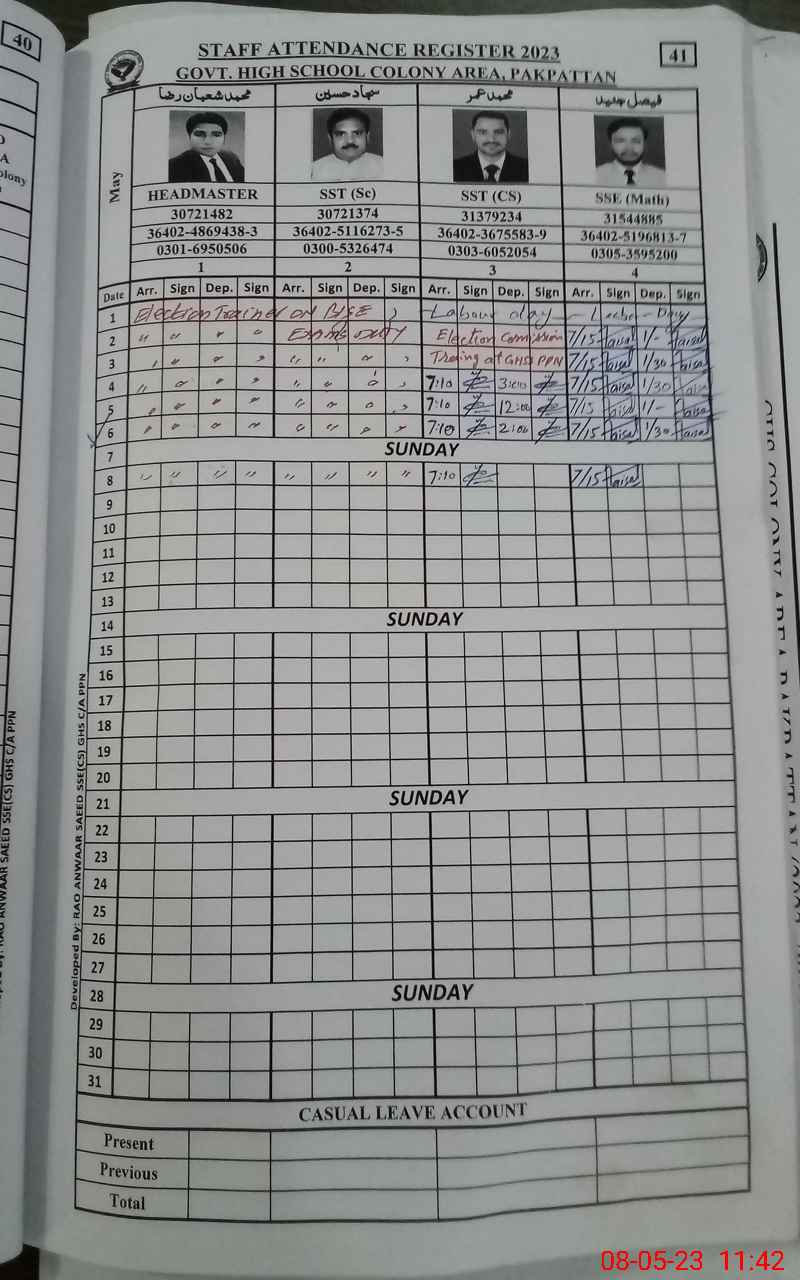 40
STAFF ATTENDANCE REGISTER 2023
41
GOVT. HIGH SCHOOL COLONY AREA, PAKPATTAN
May محمد شعبان رضا سجاد حسین محمد عمر فیصل جنید
HEADMASTER SST (Sc) SST (CS) SSE (Math)
30721482 30721374 31379234 31544885
36402-4869438-3 36402-5116273-5 36402-3675583-9 36402-5196813-7
0301-6950506 0300-5326474 0303-6052054 0305-3595200
1 2 3 4
Date Arr. Sign Dep. Sign Arr. Sign Dep. Sign Arr. Sign Dep. Sign Arr. Sign Dep. Sign
1 Election Trainer ON BISE Labour day - - Day
2 " " " " EXAMS DUTY Election Commission 7/15 faisal 1/- faisal
3 " " " " " " " " Traning at GHS PPN 7/15 faisal 1/30 faisal
4 " " " " " " " " 7:10 3:00 7/15 faisal 1/30 faisal
5 " " " " " " " " 7:10 12:00 7/15 faisal 1/- faisal
6 " " " " " " " " 7:10 2:00 7/15 faisal 1/30 faisal
7 SUNDAY
8 " " " " " " " " 7:10 7/15 faisal
9
10
11
12
13
14 SUNDAY
15
16
17
18
19
20
21 SUNDAY
22
23
24
25
26
27
28 SUNDAY
29
30
31
CASUAL LEAVE ACCOUNT
Present
Previous
Total
Developed By: RAO ANWAAR SAEED SSE(CS) GHS C/A PPN
RAO ANWAAR SAEED SSE(CS) GHS C/A PPN
08-05-23 11:42